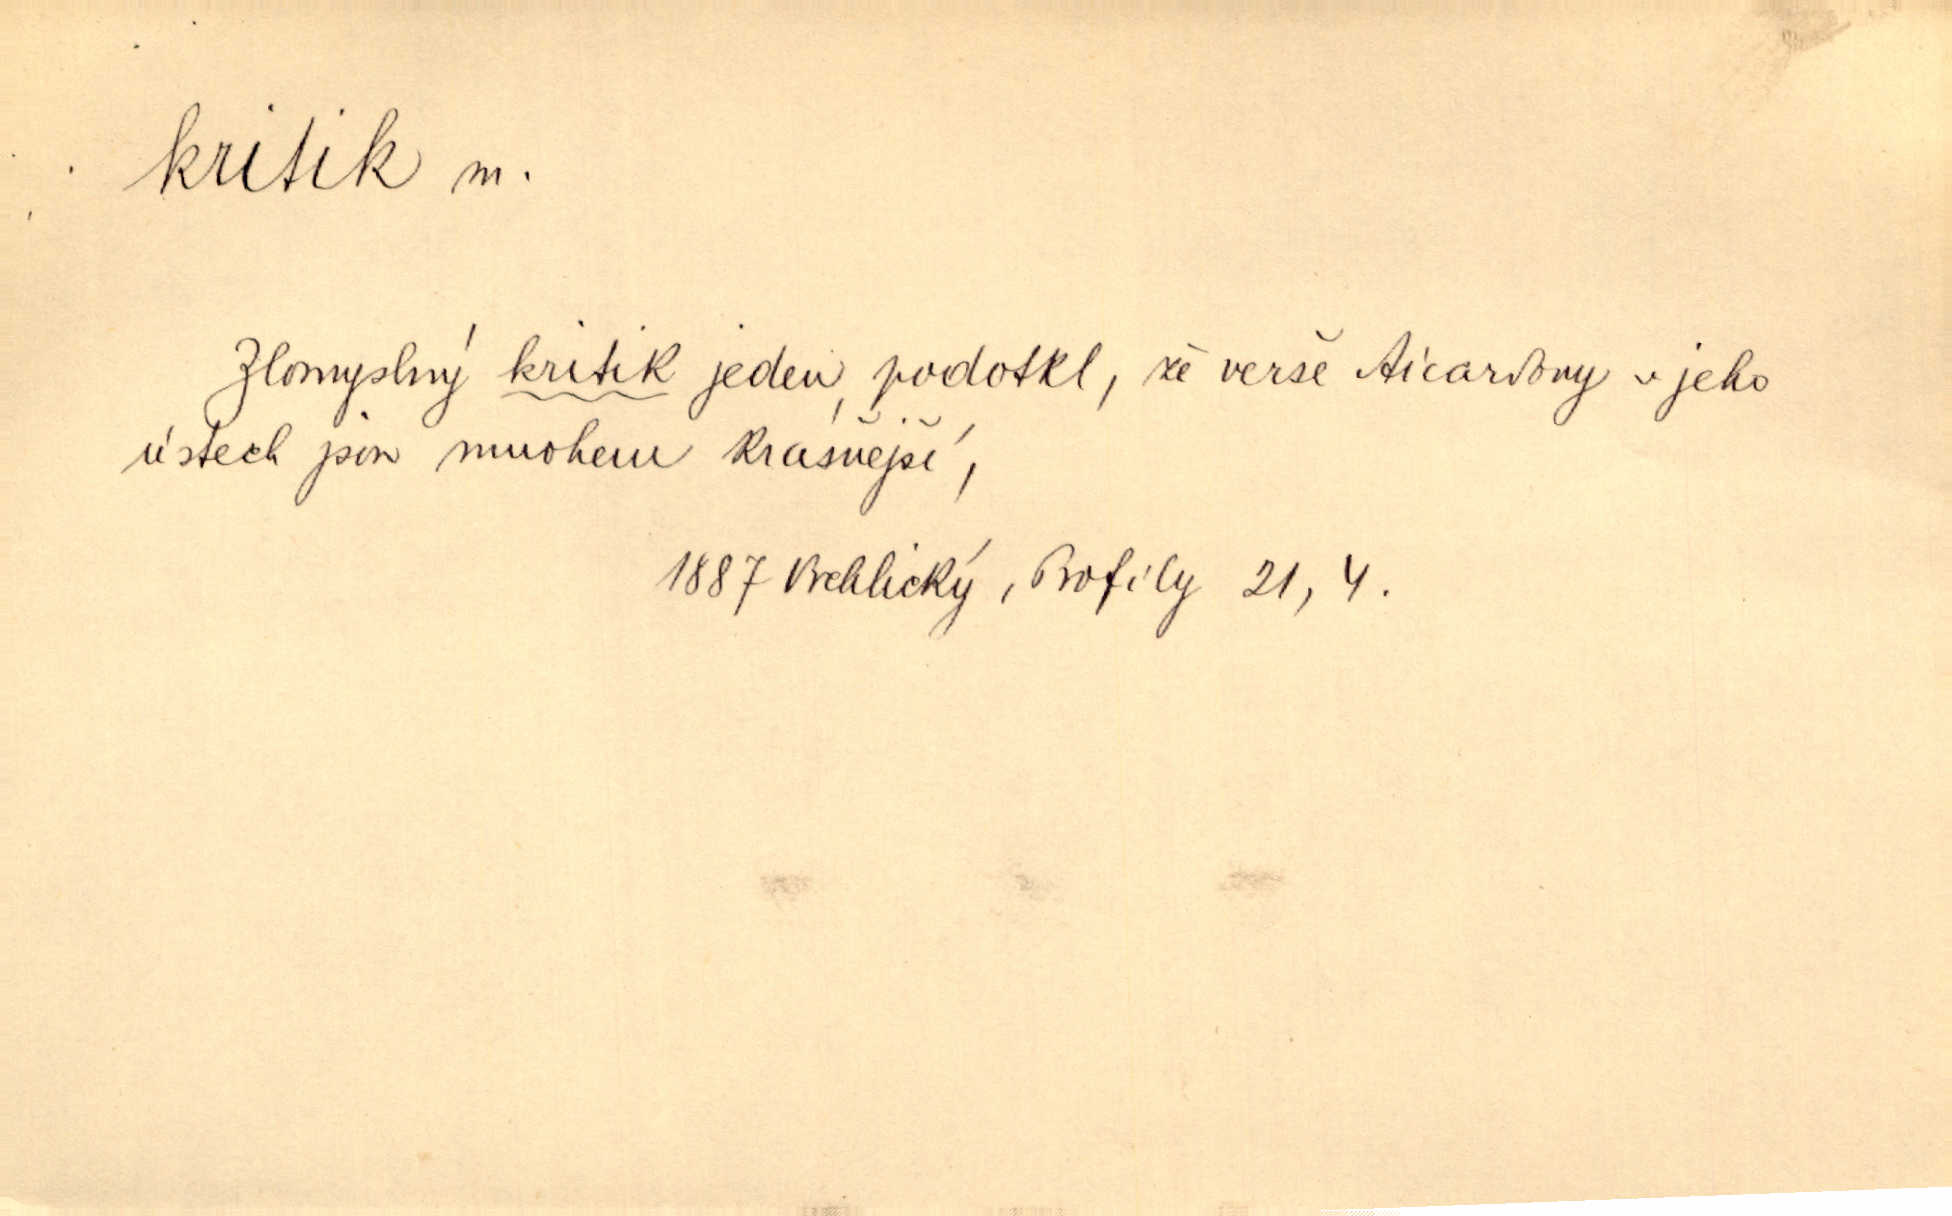 kritik m.
Zlomyslný kritik jeden podotkl, že verše Aicardovy v jeho
ústech jsou mnohem krásnější,
1887 Vrchlický, Profily 21, 4.